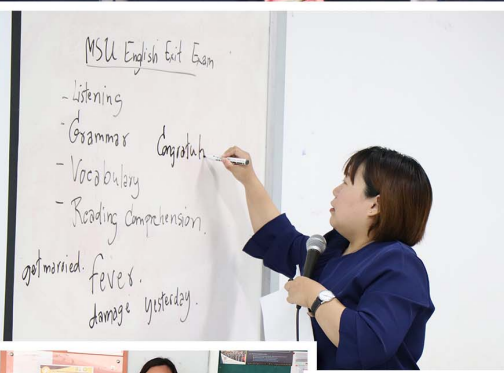 MSU English Exit Exam
- Listening
- Grammar
Congratul
- Vocabulary
- Reading Comprehension.
get married.
fever.
damage yesterday.